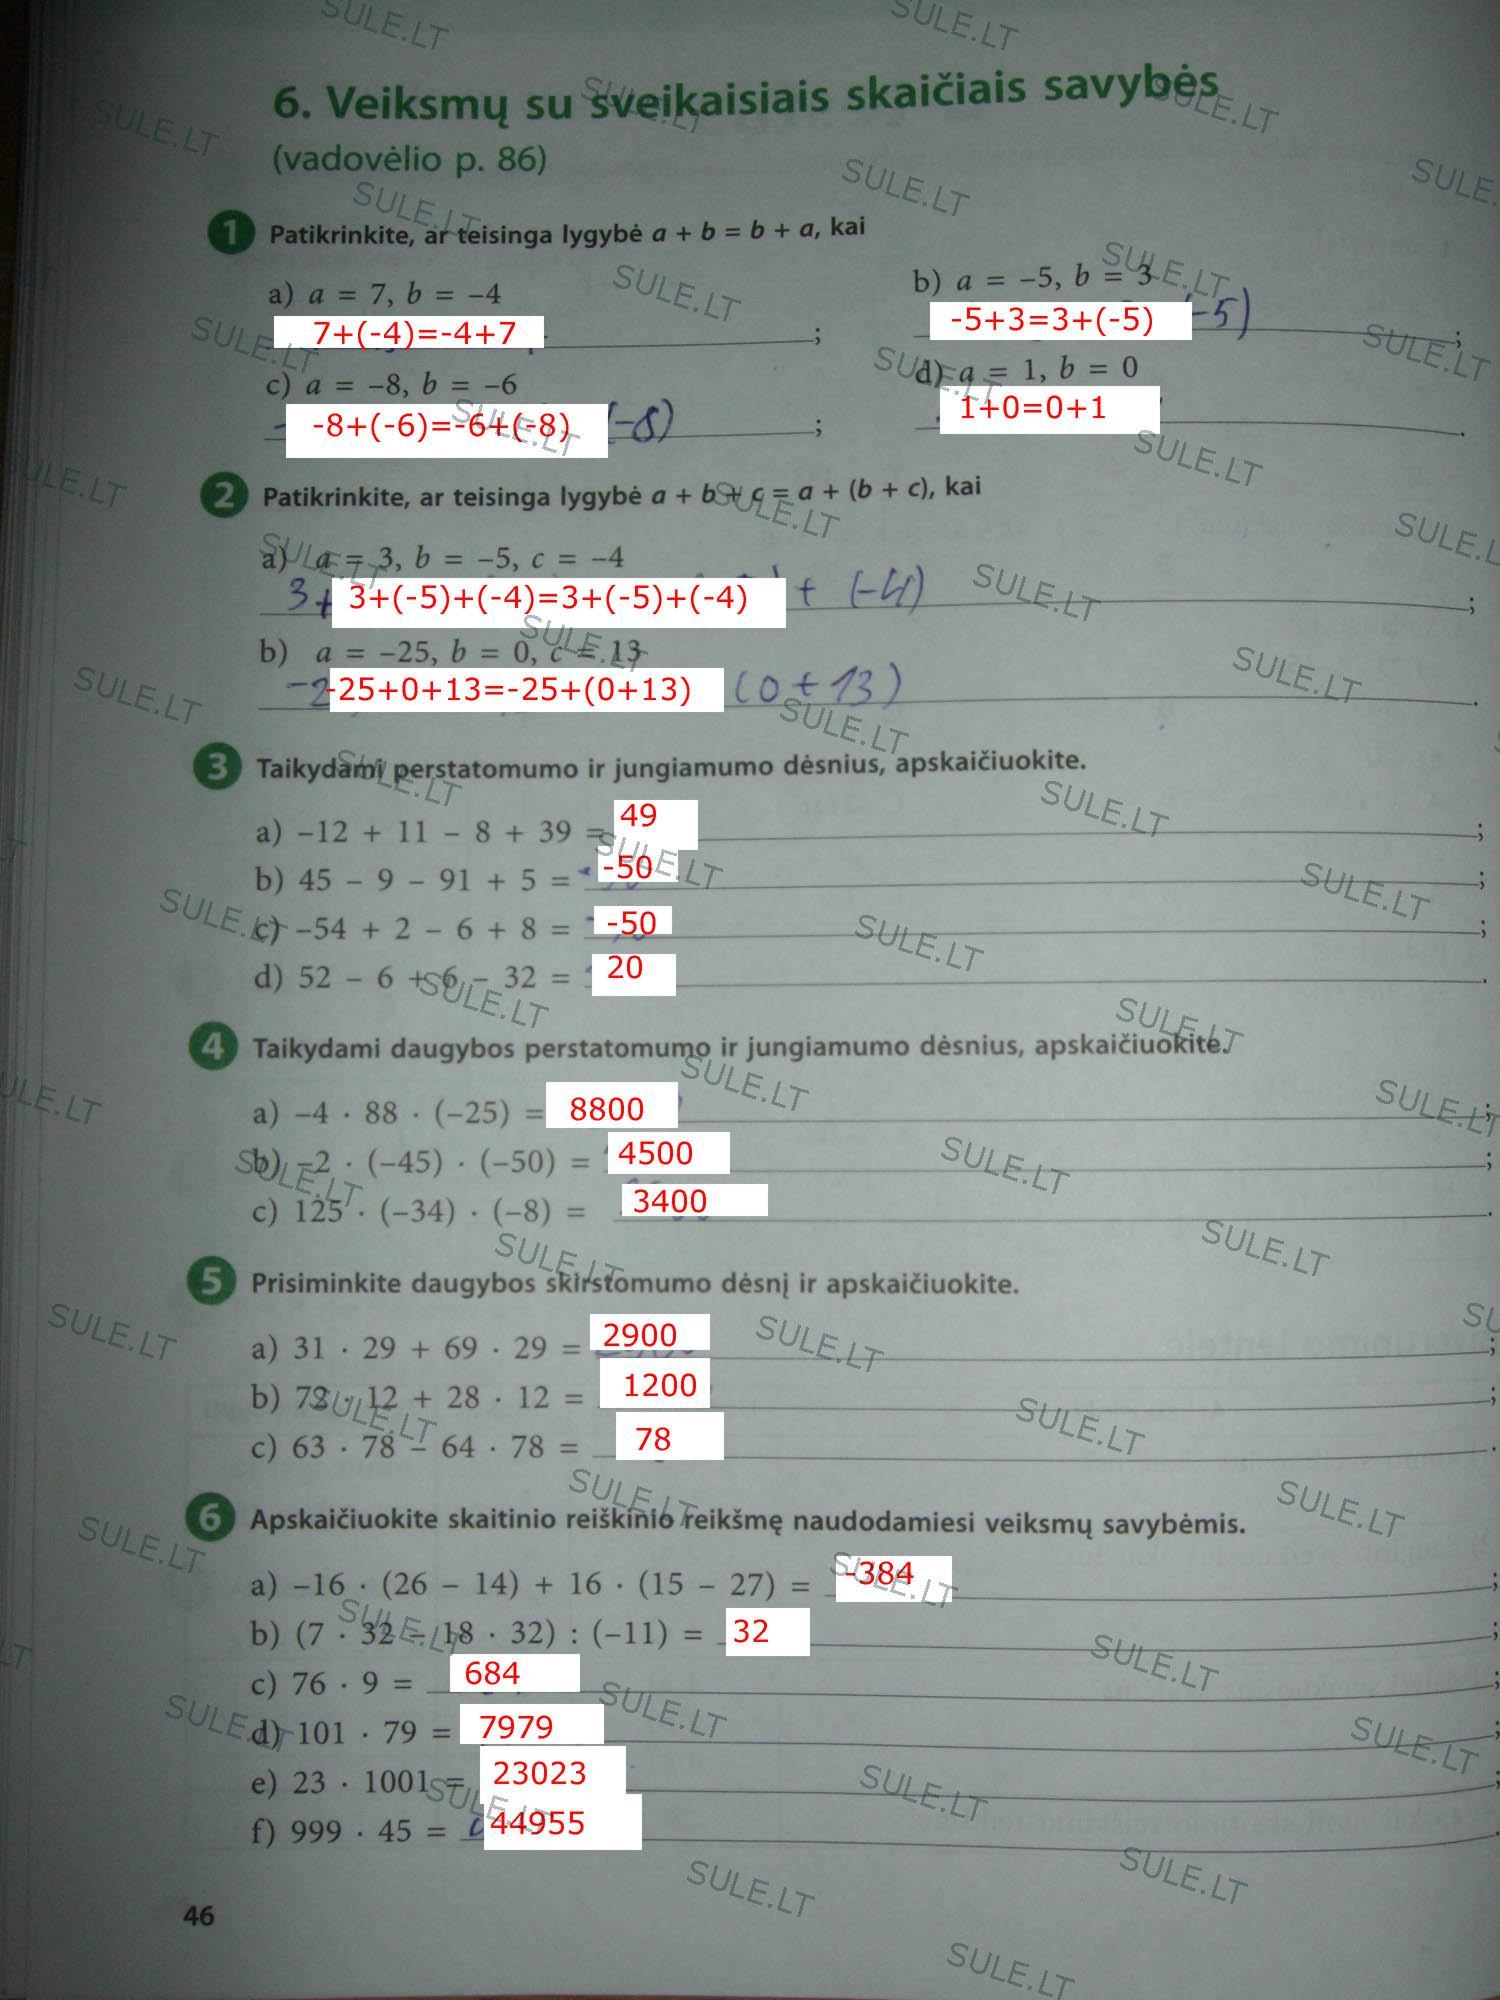 6. Veiksmų su sveikaisiais skaičiais savybės
(vadovėlio p. 86)
1 Patikrinkite, ar teisinga lygybė a + b = b + a, kai
a) a = 7, b = –4
7+(-4)=-4+7 ;
b) a = –5, b = 3
-5+3=3+(-5) -5) ;
c) a = –8, b = –6
-8+(-6)=-6+(-8) (-8) ;
d) a = 1, b = 0
1+0=0+1 .
2 Patikrinkite, ar teisinga lygybė a + b + c = a + (b + c), kai
a) a = 3, b = –5, c = –4
3+ 3+(-5)+(-4)=3+(-5)+(-4) + (-4) ;
b) a = –25, b = 0, c = 13
-2 -25+0+13=-25+(0+13) (0+13) .
3 Taikydami perstatomumo ir jungiamumo dėsnius, apskaičiuokite.
a) –12 + 11 – 8 + 39 = 49 ;
b) 45 – 9 – 91 + 5 = -50 ;
c) –54 + 2 – 6 + 8 = -50 ;
d) 52 – 6 + 6 – 32 = 20 .
4 Taikydami daugybos perstatomumo ir jungiamumo dėsnius, apskaičiuokite.
a) –4 · 88 · (–25) = 8800 ;
b) –2 · (–45) · (–50) = 4500 ;
c) 125 · (–34) · (–8) = 3400 .
5 Prisiminkite daugybos skirstomumo dėsnį ir apskaičiuokite.
a) 31 · 29 + 69 · 29 = 2900 ;
b) 72 · 12 + 28 · 12 = 1200 ;
c) 63 · 78 – 64 · 78 = 78 .
6 Apskaičiuokite skaitinio reiškinio reikšmę naudodamiesi veiksmų savybėmis.
a) –16 · (26 – 14) + 16 · (15 – 27) = -384 ;
b) (7 · 32 – 18 · 32) : (–11) = 32 ;
c) 76 · 9 = 684 ;
d) 101 · 79 = 7979 ;
e) 23 · 1001 = 23023 ;
f) 999 · 45 = 44955 .
46
SULE.LT